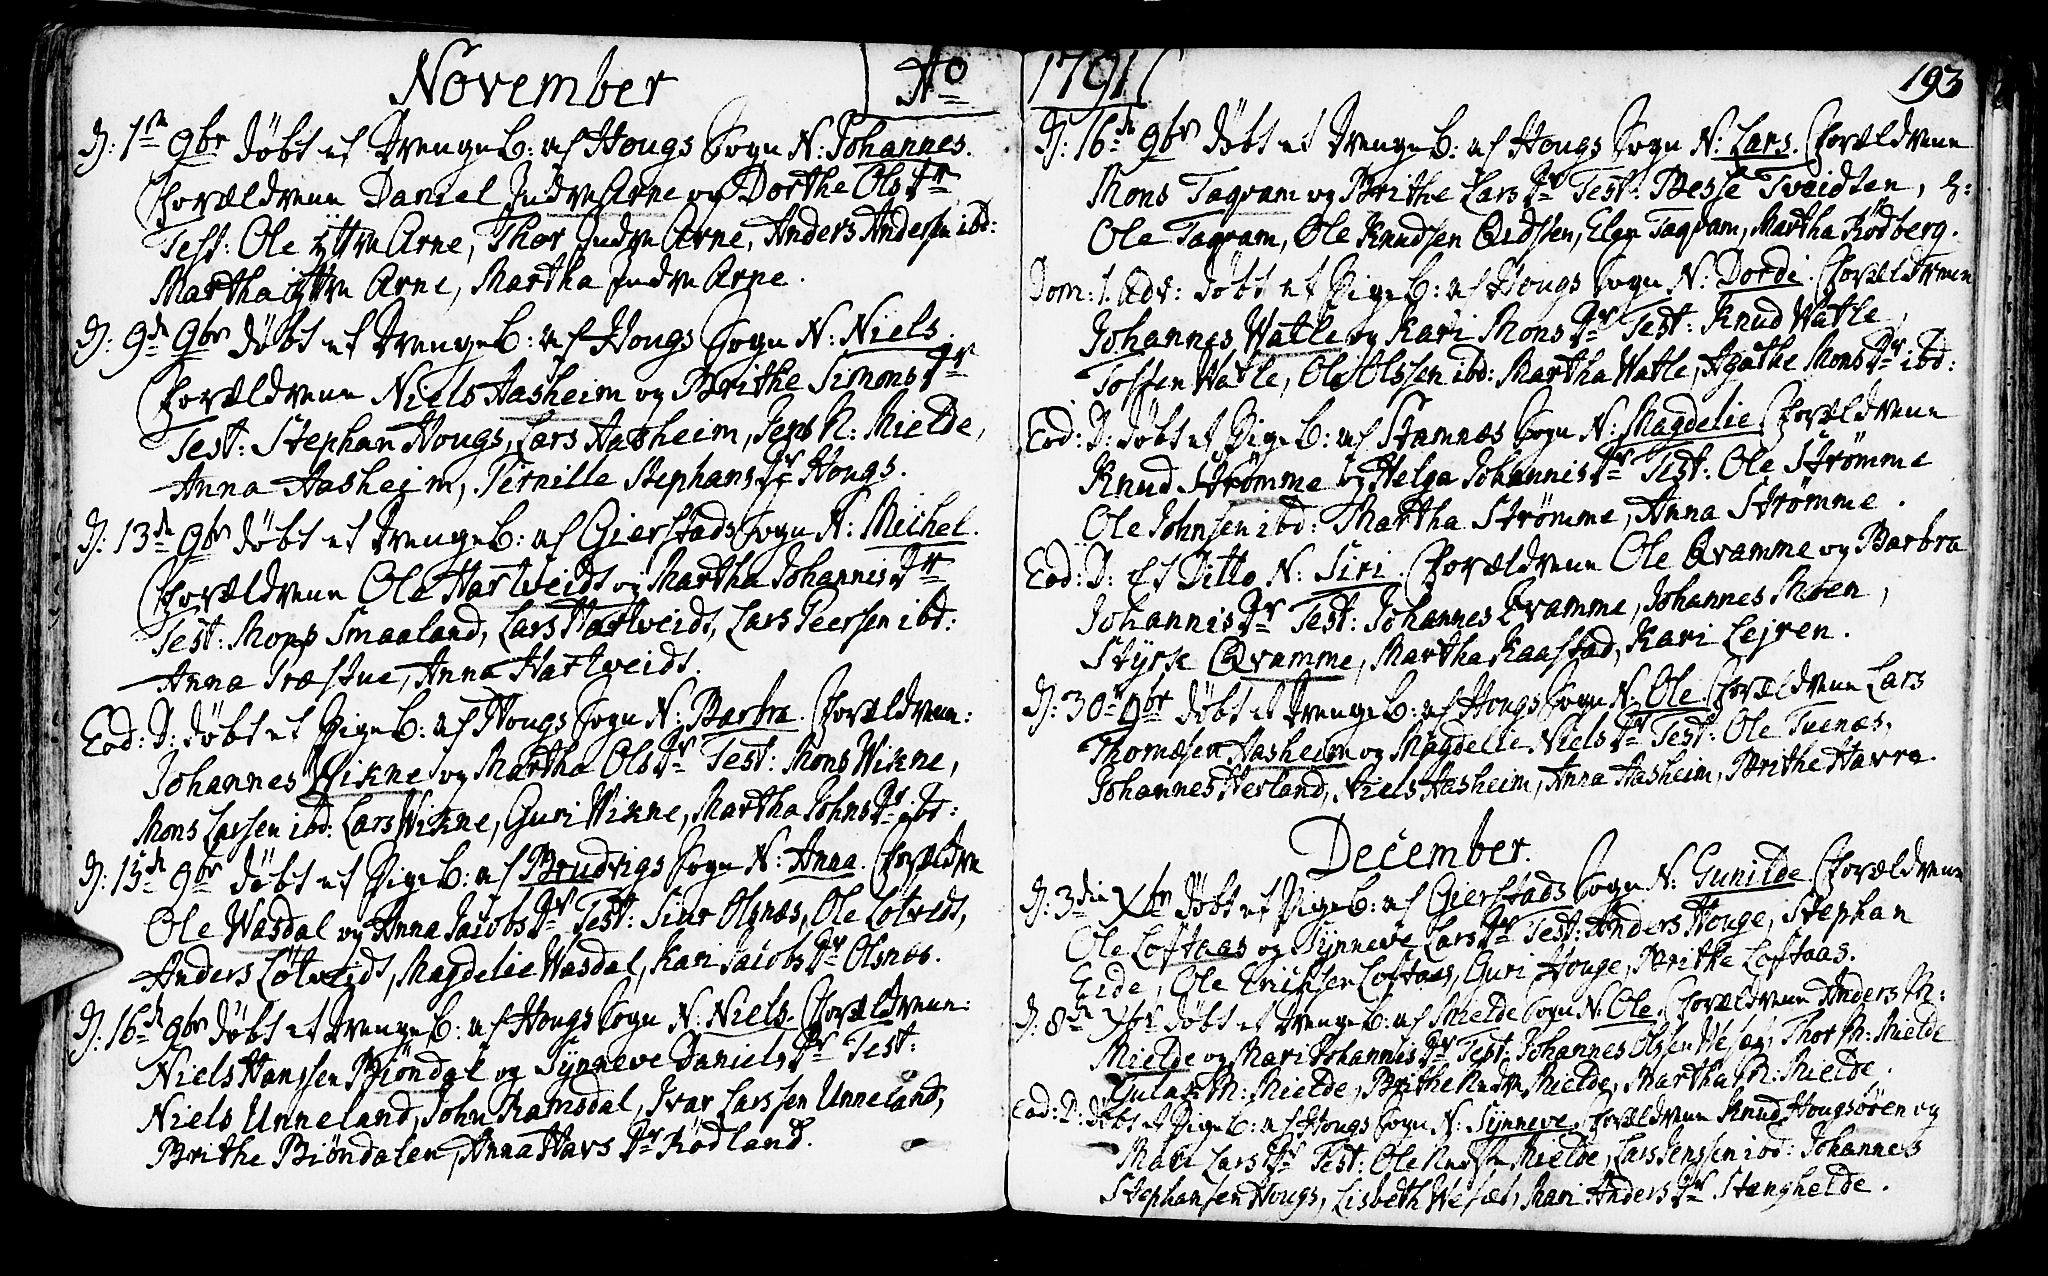 November Ao
D: 1ste 9br döbt et DrengeB: af Hougs Sogn N: Johannes.
Forældrene Daniel Indre Arne og Dorthe Ols Dr
Test: Ole yttre Arne, Thor Indre Arne, Anders Andersen ibd:
Martha yttre Arne, Martha Indre Arne.
D: 9de 9br döbt et DrengeB: af Hougs Sogn N: Niels.
Forældrene Niels Aasheim og Brithe Simons Dr
Test: Stephan Hougs, Lars Aasheim, Jens N: Mielde,
Anna Aasheim, Pernille Stephans Dr Hougs.
D: 13de 9br döbt et DrengeB: af Gierstads Sogn N: Michel.
Forældrene Ole Hartveidt og Martha Johannis Dr
Test: Mons Smaaland, Lars Hartveidt, Lars Peersen ibd:
Anna Træstue, Anna Hartveidt.
Eod: D: döbt et PigeB: af Hougs Sogn N: Barbra. Forældrene:
Johannes Wikne og Martha Ols Dr Test: Mons Wikne,
Mons Larssen ibd: Lars Wikne, Guri Wikne, Martha Johns Dr ibd:
D: 15de 9br döbt et PigeB: af Brudvigs Sogn N: Anna. Forældre
Ole Wasdal og Anna Jacobs Dr Test: Siur Olsnæs, Ole Lotveit,
Anders Lötveidt, Magdelie Wasdal, Kari Jacobs Dr Olsnæs.
D: 16de 9br döbt et DrengeB: af Hougs Sogn N: Niels. Forældrene:
Niels Hanssen Biöndal og Synneve Daniels Dr Test:
Niels Unneland, John Ramsdal, Ivar Larssen Unneland,
Brithe Biöndalen, Anna Havs Dr Rödland.
1791 193
D: 16de 9br döbt et DrengeB: af Hougs Sogn N: Lars. Forældrene
Mons Tagvam og Brithe Lars Dr Test: Besse Tveidten,
Ole Tagvam, Ole Knudsen Eidsten, Elen Tagvam, Martha Rödberg.
Dom: 1. Adv: döbt et PigeB: af Hougs Sogn N: Dordi. Forældrene
Johannes Watle og Kari Mons Dr Test: Knud Watle,
Tosten Watle, Ole Olssen ibd: Martha Watle, Agathe Mons Dr ibd:
Eod: D: döbt et PigeB: af Stamnæs Sogn N: Magdelie. Forældrene
Knud Strömme og Helga Johannis Dr Test: Ole Strömme
Ole Johnsen ibd: Martha Strömme, Anna Strömme.
Eod: D: et Ditto N: Siri. Forældrene Ole Qvamme og Barbra
Johannis Dr Test: Johannes Qvamme, Johannes Moen,
Styrk Qvamme, Martha Kaastad, Kari Lejren.
D: 30te 9br döbt et DrengeB: af Hougs Sogn N: Ole. Forældrene Lars
Thomæsen Aasheim og Magdelie Niels Dr Test: Ole Tuenæs,
Johannes Herland, Niels Aasheim, Anna Aasheim, Brithe Havra.
December.
D: 3die Xbr döbt et PigeB: af Gierstads Sogn N: Gunilde Forældrene
Ole Loftaas og Synneve Lars Dr Test: Anders Houge, Stephan
Eide, Ole Erichsen Loftaas, Guri Houge, Brithe Loftaas.
D: 8de Xbr döbt et DrengeB: af Mielde Sogn N: Ole. Forældrene Anders M:
Mielde og Mari Johannis Dr Test: Johannes Olssen Wesæt, Thor M: Mielde
Gulak M: Mielde, Brithe Nedre Mielde, Martha M: Mielde.
Eod: D: döbt et PigeB: af Hougs Sogn N: Synneve. Forældrene Knud Hougsören og
Mari Lars Dr Test: Ole Mielde, Lars Jenssen ibd: Johannes
Stephansen Hougs, Lisbeth Wesæt, Mari Anders Dr Stanghelde.